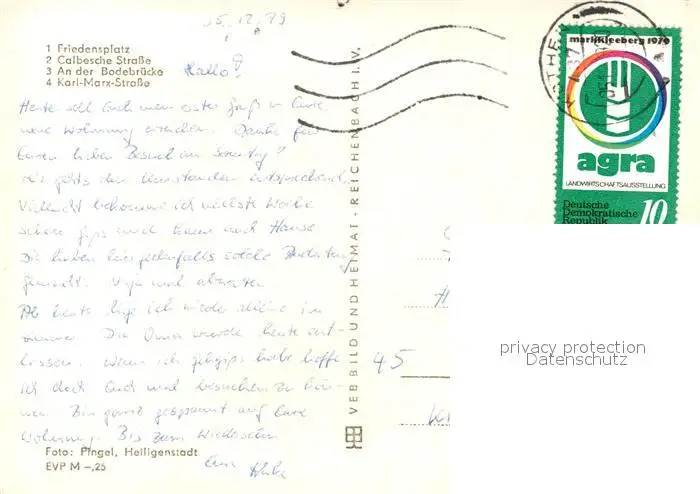 15.12.79
1 Friedensplatz
2 Calbesche Straße
3 An der Bodebrücke
4 Karl-Marx-Straße
Hallo!
Heute soll Euch mein erster Gruß in Eure
neue Wohnung erreichen. Danke für
Euren lieben Besuch am Sonntag!
Mir gehts den Umständen entsprechend.
Vielleicht bekomme ich nächste Woche
schon Gips und kann nach Hause
Die haben hier jedenfalls solche
gemacht. und abwarten.
Ab heute liege ich wieder alleine im
Zimmer. Die Oma wurde heute ent-
lassen. Wenn ich Gehgips habe hoffe
ich doch Euch mal besuchen zu kön-
nen. Bin ganz gespannt auf Eure
Wohnung. Bis zum Wiedersehn
Foto: Pingel, Heiligenstadt
EVP M –,25
VEB BILD UND HEIMAT · REICHENBACH I. V.
45
markkleeberg 1979
agra
LANDWIRTSCHAFTSAUSSTELLUNG
Deutsche
Demokratische
Republik
10
privacy protection
Datenschutz